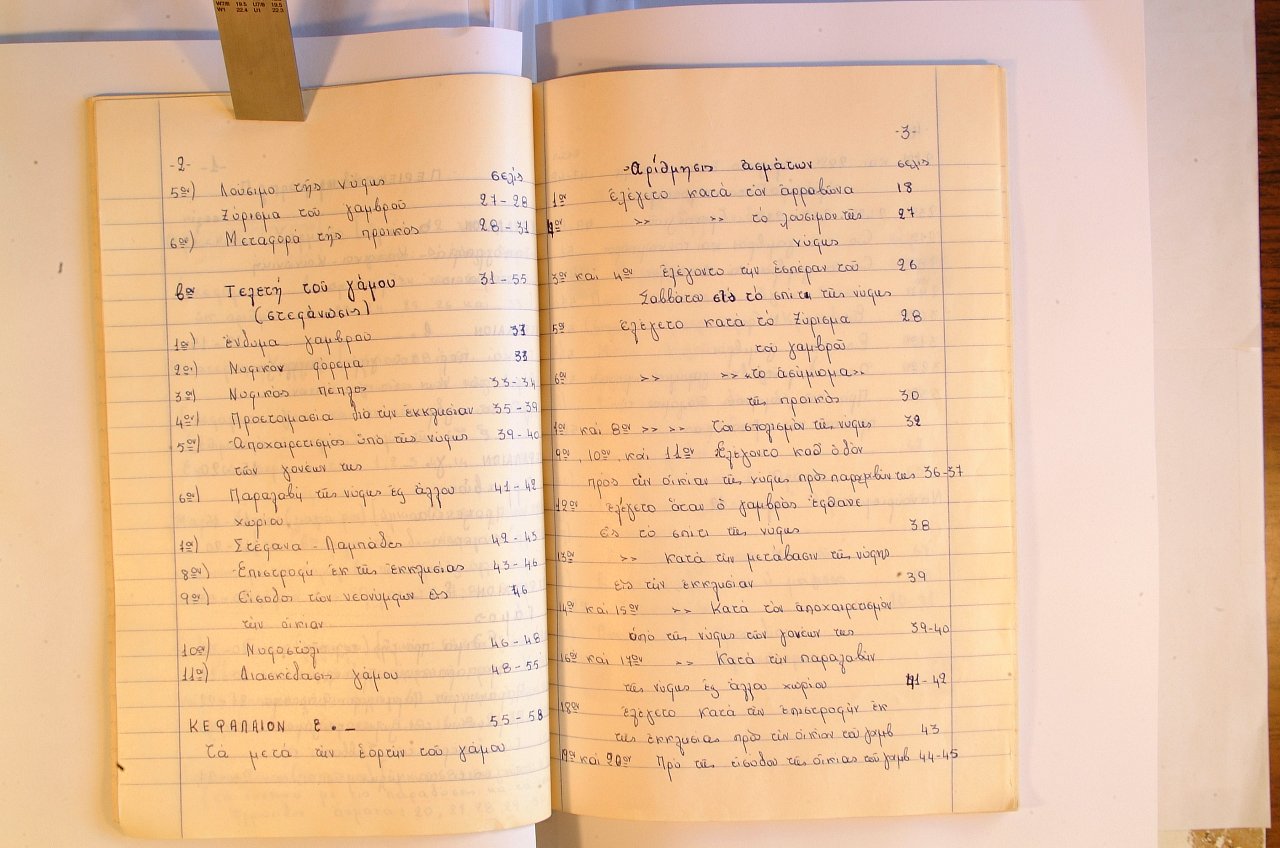 W7/8 19.5 U7/8 19.5
W1 22.4 U1 22.3
-2-
σελίς
5ον) Λούσιμο τῆς νύφης 27-28
Ξύρισμα τοῦ γαμβροῦ
6ον) Μεταφορά τῆς προικός 28-31
βον Τελετή τοῦ γάμου 31-55
(στεφάνωσις)
1ον) ἔνδυμα γαμβροῦ
2ον) Νυφικόν φόρεμα 33
3ον) Νυφικός πέπλος 33-34
4ον) Προετοιμασία διά τήν ἐκκλησίαν 35-39
5ον) Ἀποχαιρετισμός ὑπό τῆς νύφης 39-40
τῶν γονέων της
6ον) Παραλαβή τῆς νύφης ἐξ ἄλλου 41-42
χωρίου
7ον) Στέφανα - Λαμπάδες 42-43
8ον) Ἐπιστροφή ἐκ τῆς ἐκκλησίας 43-46
9ον) Εἴσοδος τῶν νεονύμφων εἰς 46
τήν οἰκίαν
10ον) Νυφοστόλι 46-48
11ον) Διασκέδασις γάμου 48-55
ΚΕΦΑΛΑΙΟΝ Ε.- 55-58
Τά μετά τήν ἑορτήν τοῦ γάμου
-3-
Ἀρίθμησις ᾀσμάτων σελίς
1ον Ἐλέγετο κατά τόν ἀρραβῶνα 18
2ον >> >> τό λούσιμο τῆς 27
νύφης
3ον καί 4ον ἐλέγοντο τήν ἑσπέραν τοῦ 26
Σαββάτου στό τό σπίτι τῆς νύφης
5ον ἐλέγετο κατά τό ξύρισμα 28
τοῦ γαμβροῦ
6ον >> >> «το ἀσήμωμα»
τῆς προικός 30
7ον καί 8ον >> >> Τόν στολισμόν τῆς νύφης 32
9ον, 10ον, καί 11ον Ἐλέγοντο καθ' ὁδόν
πρός τήν οἰκίαν τῆς νύφης πρός παραλαβήν της 36-37
12ον ἐλέγετο ὅταν ὁ γαμβρός ἔφθανε
εἰς τό σπίτι τῆς νύφης 38
13ον >> κατά τήν μετάβασιν τῆς νύφης
εἰς τήν ἐκκλησίαν 39
14ον καί 15ον >> Κατά τόν ἀποχαιρετισμόν
ὑπό τῆς νύφης τῶν γονέων της 39-40
16ον καί 17ον >> Κατά τήν παραλαβήν
τῆς νύφης ἐξ ἄλλου χωρίου 41-42
18ον ἐλέγετο κατά τήν ἐπιστροφήν ἐκ
τῆς ἐκκλησίας πρός τήν οἰκίαν τοῦ γαμβ 43
19ον καί 20ον Πρό τῆς εἰσόδου τῆς οἰκίας τοῦ γαμβ 44-45